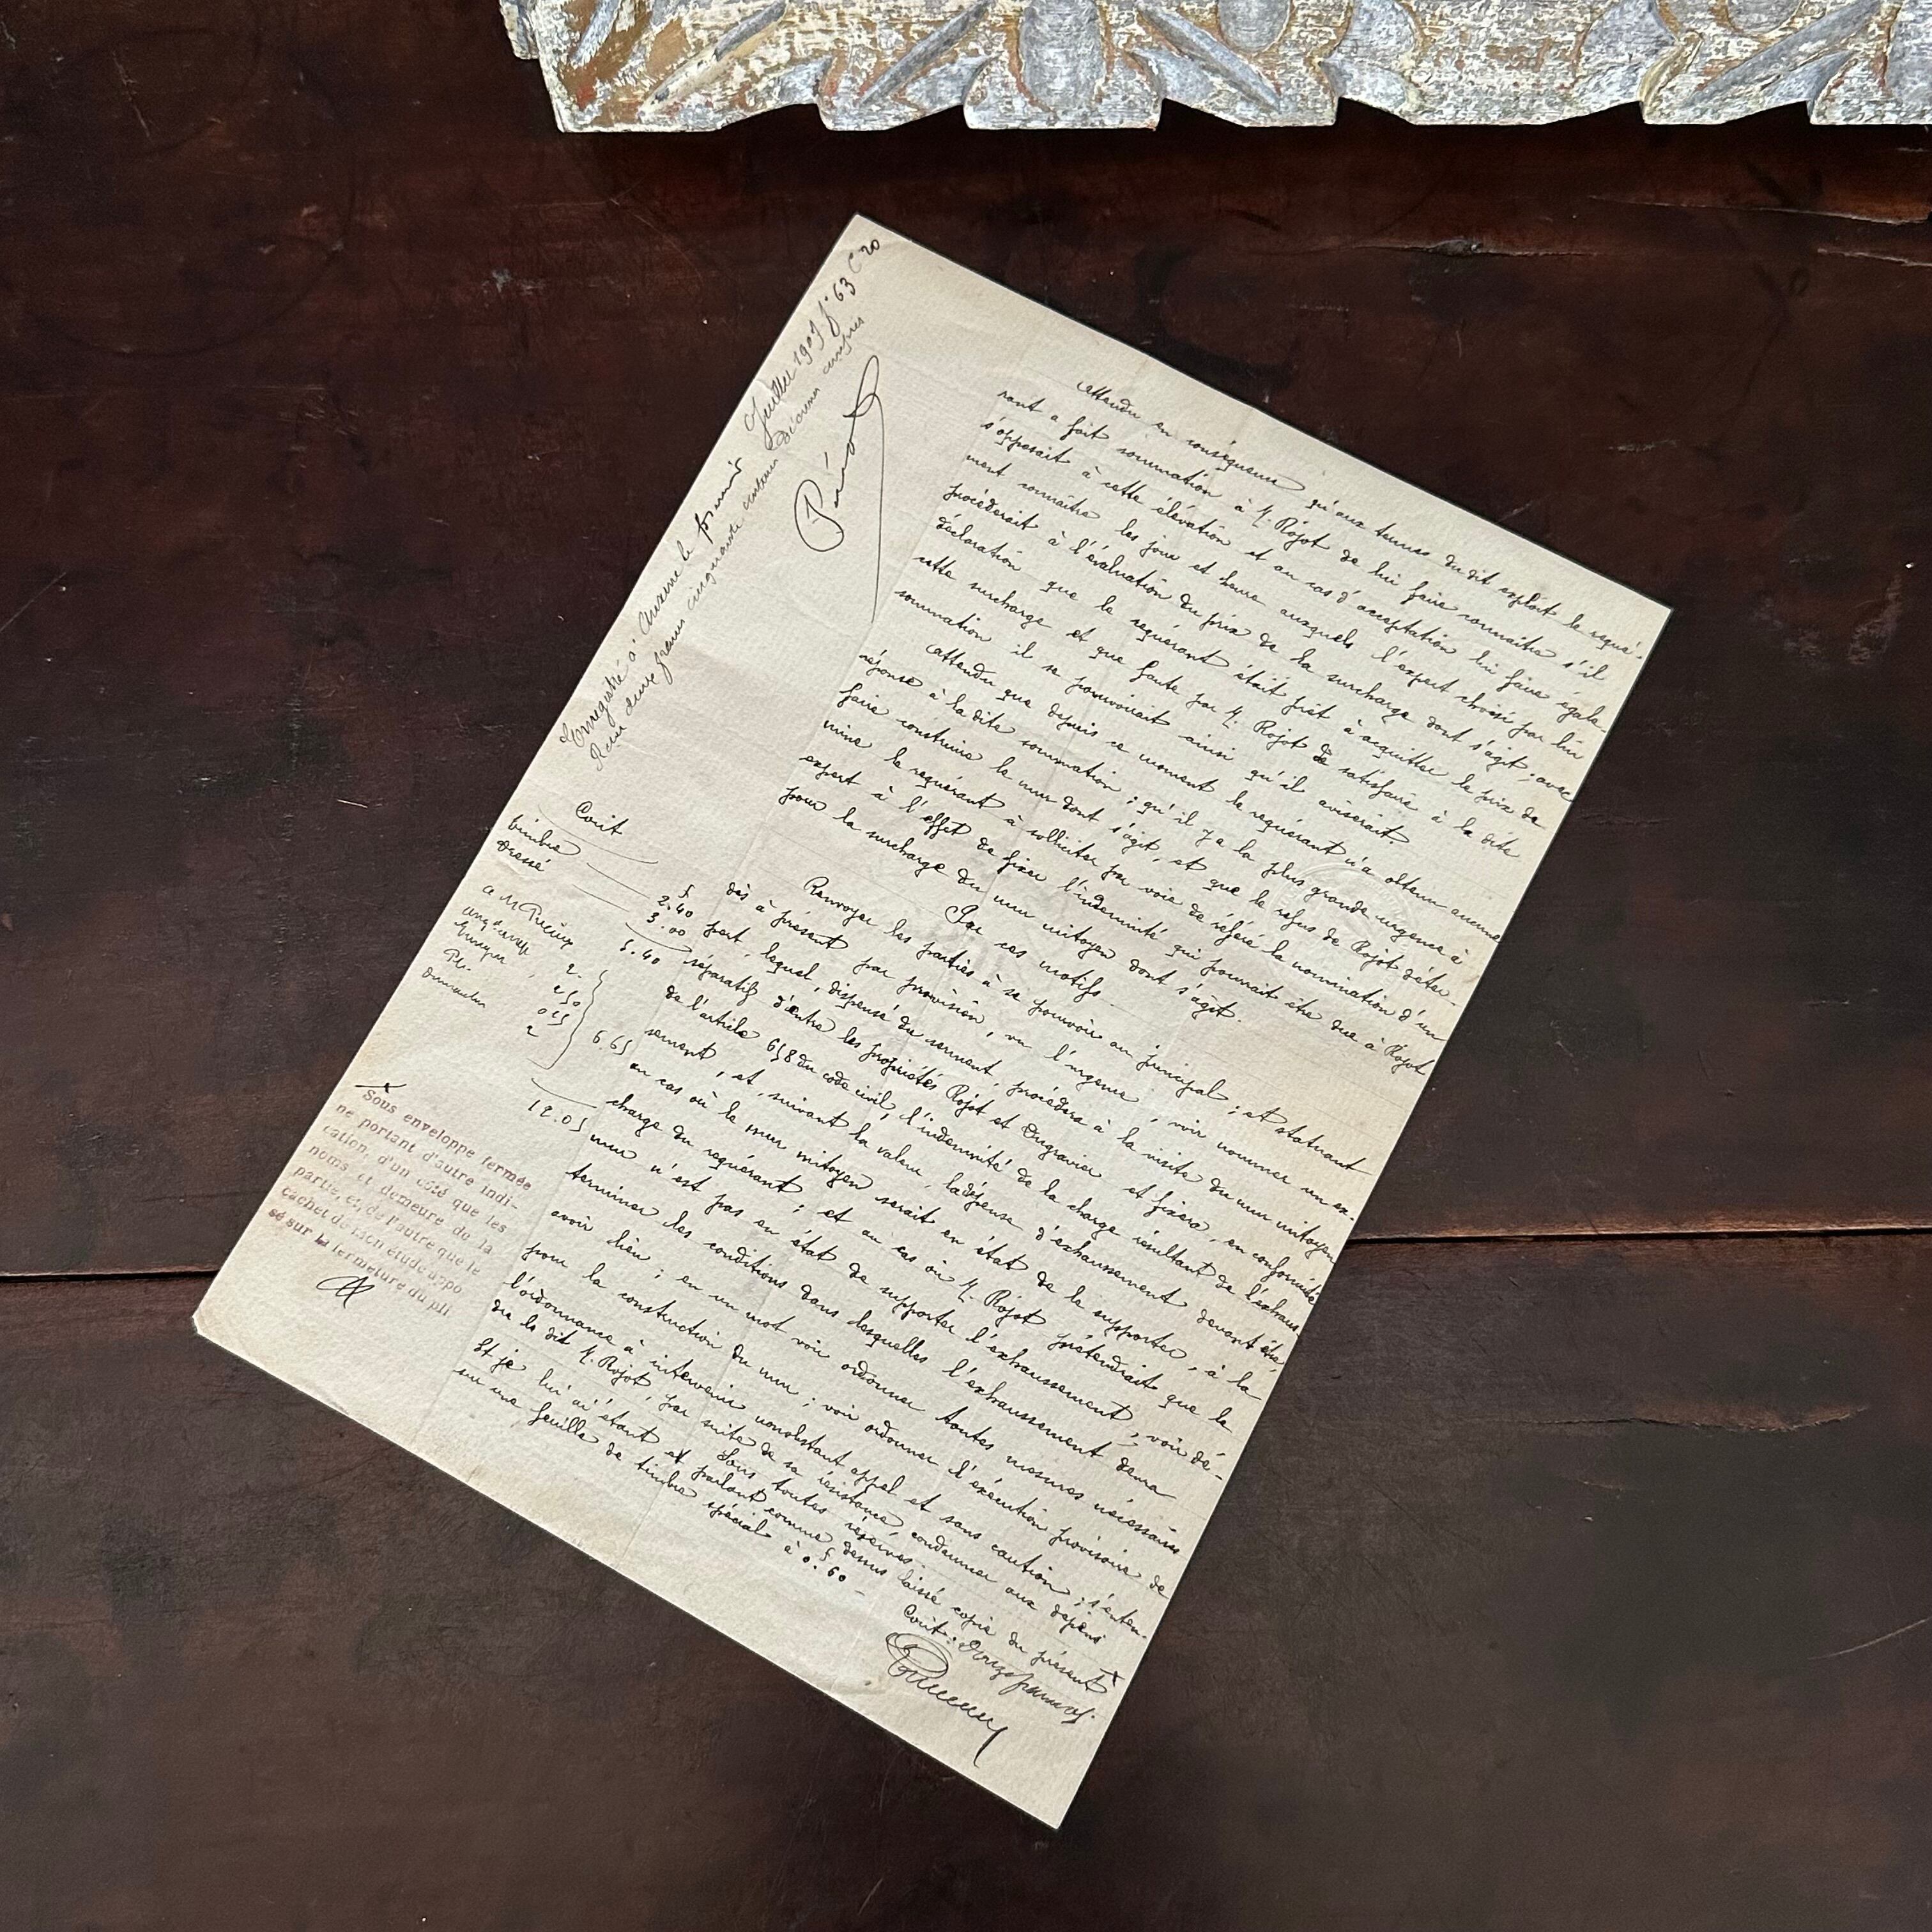 Enregistré à Auxerre le premier Juillet 1905 f° 63 C 20
Reçu deux francs cinquante centimes décimes compris
Attendu en conséquence qu'aux termes du dit exploit le requé-
rant a fait sommation à M. Rojot de lui faire connaître s'il
s'opposait à cette élévation et au cas d'acceptation lui faire égale-
ment connaître les jour et heure auxquels l'expert choisi par lui
procéderait à l'évaluation du prix de la surcharge dont s'agit ; avec
déclaration que le requérant était prêt à acquitter le prix de
cette surcharge et que faute par M. Rojot de satisfaire à la dite
sommation il se pourvoirait ainsi qu'il aviserait.
Attendu que depuis ce moment le requérant n'a obtenu aucune
réponse à la dite sommation ; qu'il y a la plus grande urgence à
faire construire le mur dont s'agit, et que le refus de Rojot déter-
mine le requérant à solliciter par voie de référé la nomination d'un
expert à l'effet de fixer l'indemnité qui pourrait être due à Rojot
pour la surcharge du mur mitoyen dont s'agit.
Par ces motifs
Renvoyer les parties à se pourvoir au principal ; et statuant
dès à présent par provision, vu l'urgence, voir nommer un ex-
pert, lequel, dispensé du serment, procédera à la visite du mur mitoyen
séparatif d'entre les propriétés Rojot et Engravier et fixera, en conformité
de l'article 658 du code civil, l'indemnité de la charge résultant de l'exhaus-
sement, et, suivant la valeur, la dépense d'exhaussement devant être,
au cas où le mur mitoyen serait en état de le supporter, à la
charge du requérant ; et au cas où M. Rojot prétendrait que le
mur n'est pas en état de supporter l'exhaussement, voir dé-
terminer les conditions dans lesquelles l'exhaussement devra
avoir lieu ; en un mot voir ordonner toutes mesures nécessaires
pour la construction du mur ; voir ordonner l'exécution provisoire de
l'ordonnance à intervenir nonobstant appel et sans caution ; s'enten-
dre le dit M. Rojot, par suite de sa résistance, condamner aux dépens
Sous toutes réserves.
Et je lui ai étant et parlant comme dessus laissé copie du présent
sur une feuille de timbre spécial à 0f.60 –
Coût :
Coût
timbre 2.40
Dressé 3.00
5.40
2.
2
6.65
12.05
Sous enveloppe fermée
ne portant d'autre indi-
cation, d'un côté que les
noms et demeure de la
partie, et de l'autre que le
cachet de mon étude appo
sé sur la fermeture du pli